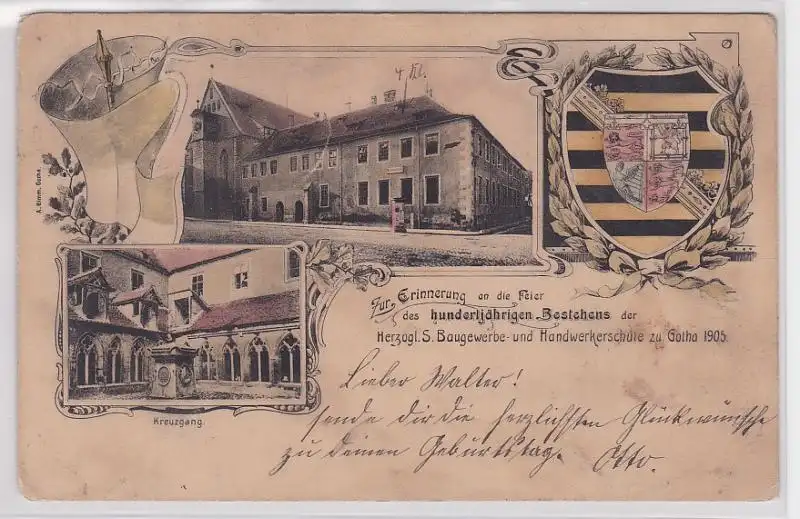 A. Simm. Gotha.
Kreuzgang.
Zur Erinnerung an die Feier
des hundertjährigen Bestehens der
Herzogl. S. Baugewerbe- und Handwerkerschule zu Gotha 1905.
Lieber Walter!
sende dir die herzlichsten Glückwünsche
zu deinen Geburtstag. Otto.